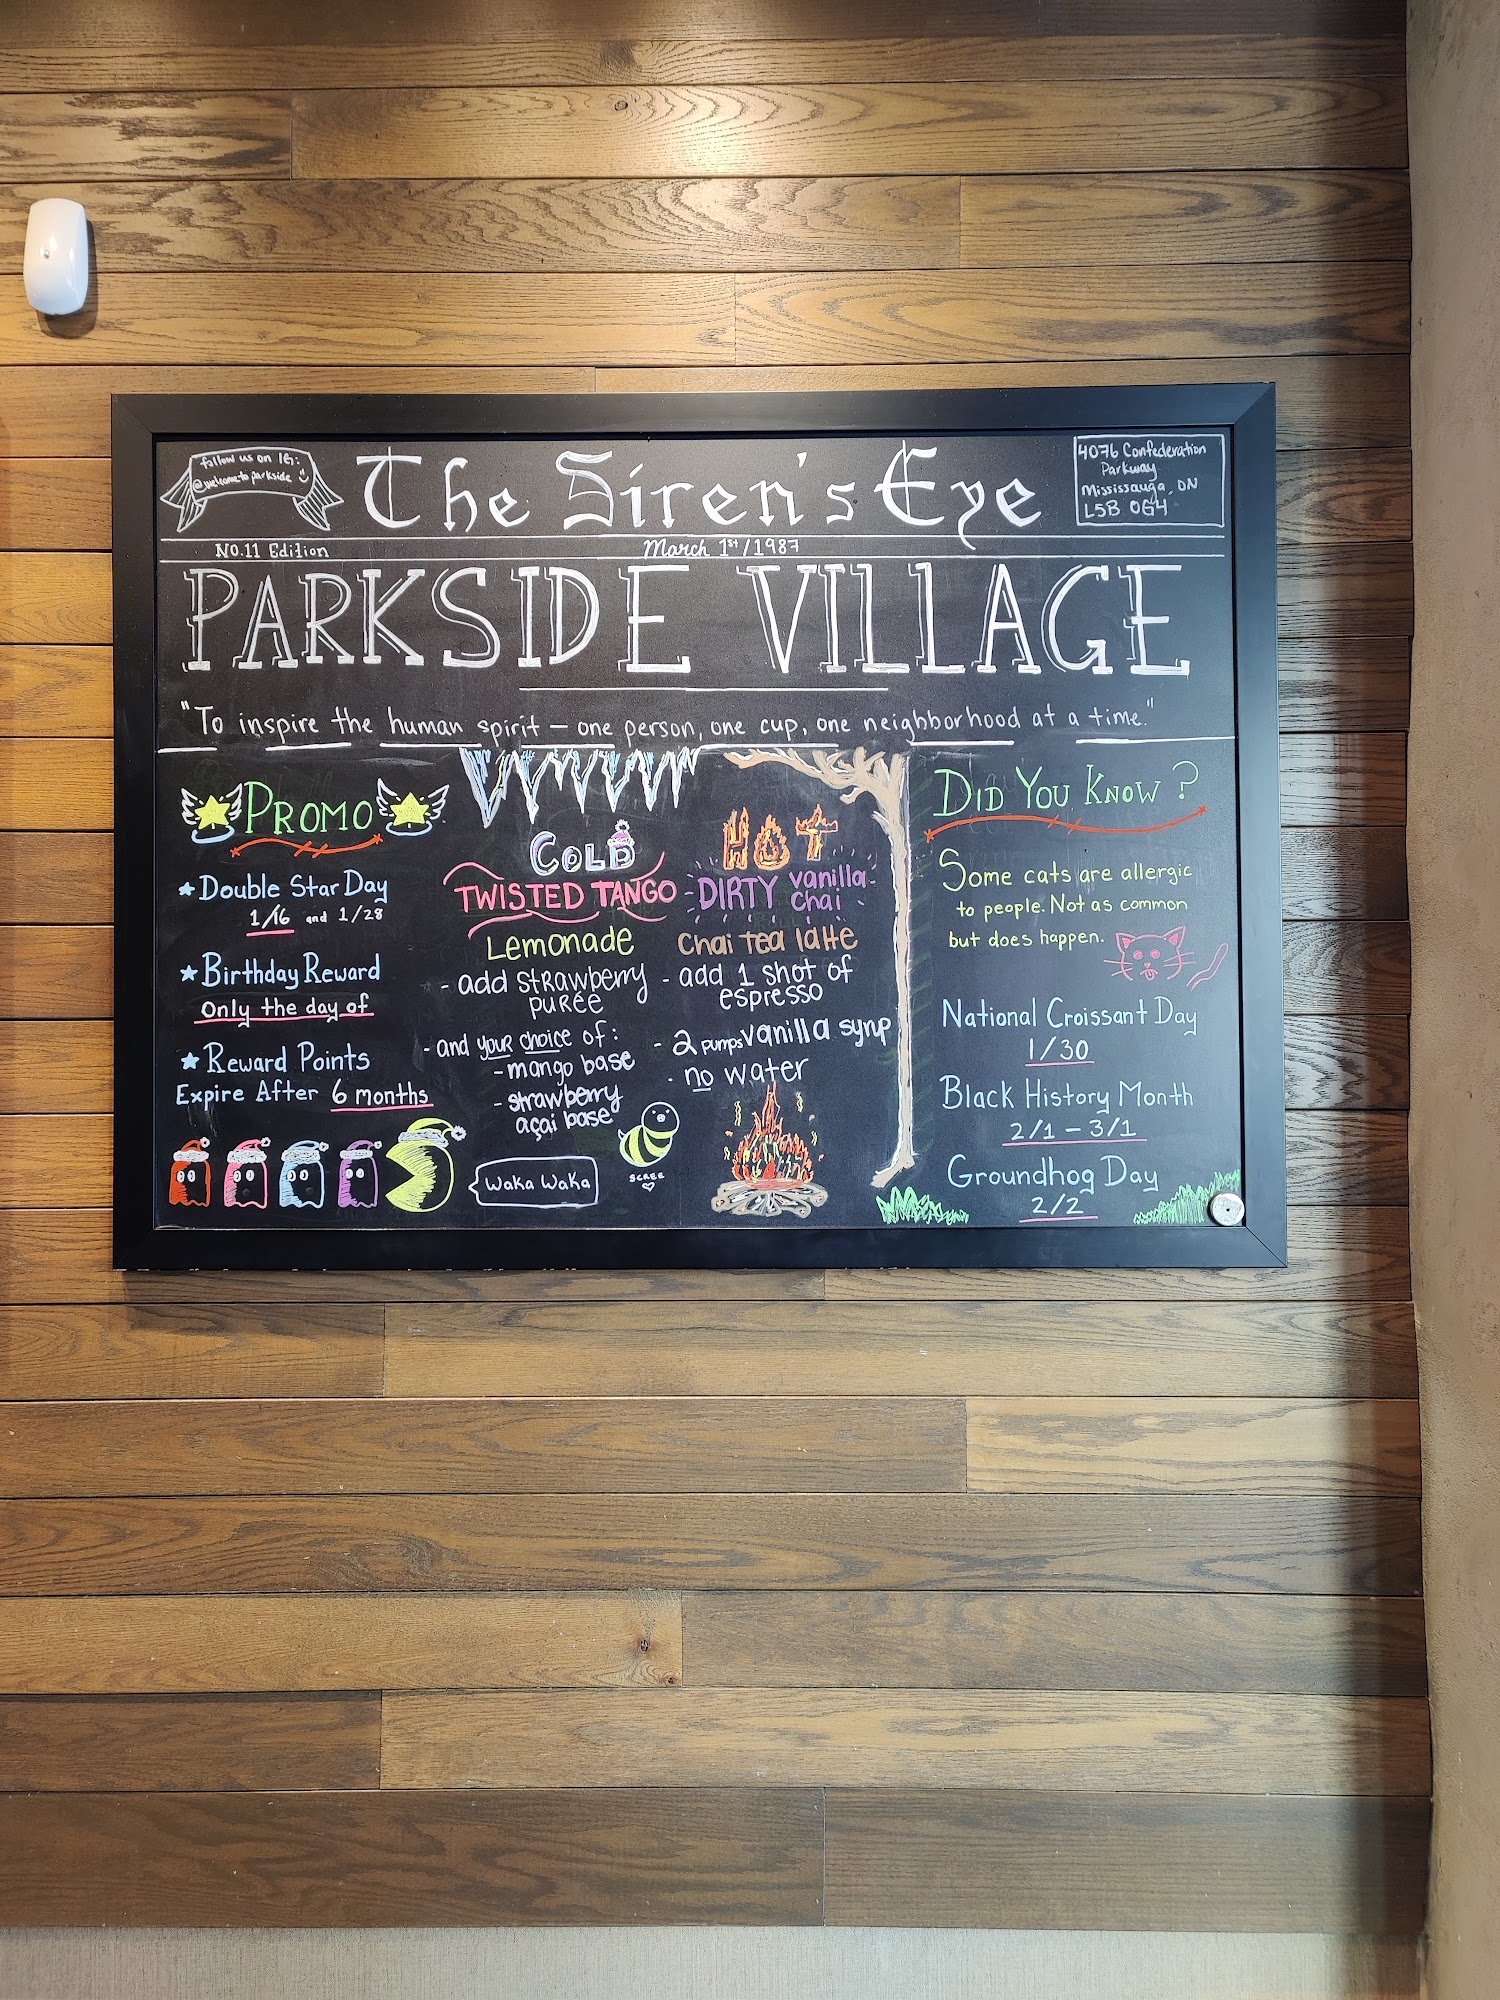 follow us on IG:
@welcometoparkside
The Siren's Eye
4076 Confederation
Parkway
Mississauga, ON
L5B 0G4
NO.11 Edition
March 1st/1987
PARKSIDE VILLAGE
"To inspire the human spirit – one person, one cup, one neighborhood at a time."
PROMO
Double Star Day
1/16 and 1/28
Birthday Reward
Only the day of
Reward Points
Expire After 6 months
Waka Waka
COLD
TWISTED TANGO
Lemonade
- add strawberry
purée
- and your choice of:
- mango base
- strawberry
açai base
SCREE
HOT
DIRTY vanilla
chai
chai tea latte
- add 1 shot of
espresso
- 2 pumps vanilla syrup
- no water
DID YOU KNOW?
Some cats are allergic
to people. Not as common
but does happen.
National Croissant Day
1/30
Black History Month
2/1 – 3/1
Groundhog Day
2/2